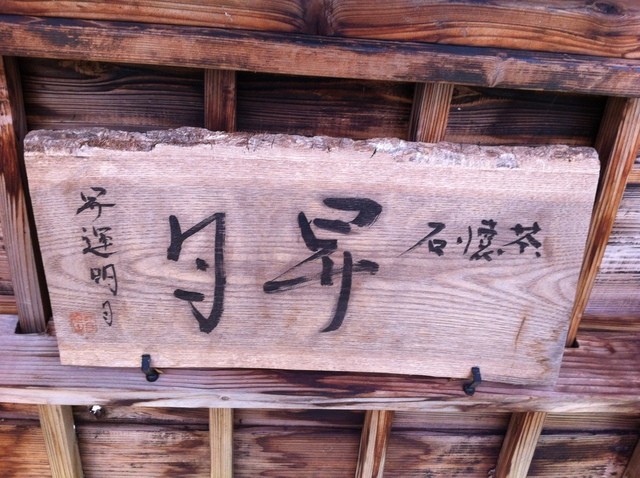 茶懐石
昇月
昇運明月